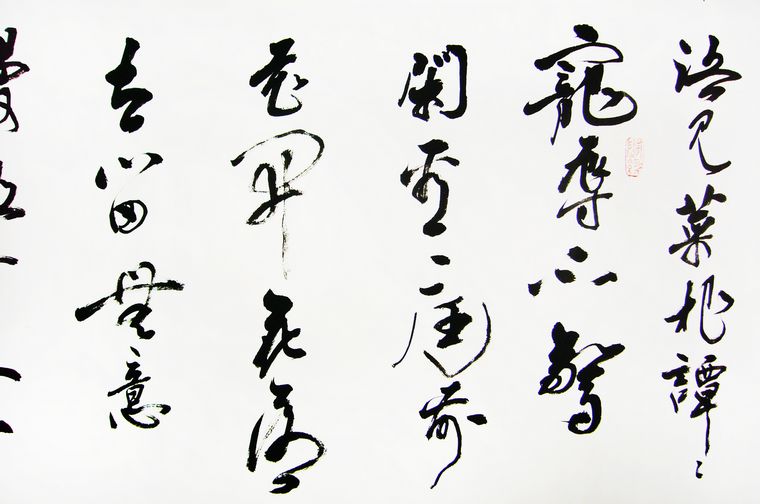 語見菜根譚
寵辱不驚
閑看庭前
花開花落
去留無意